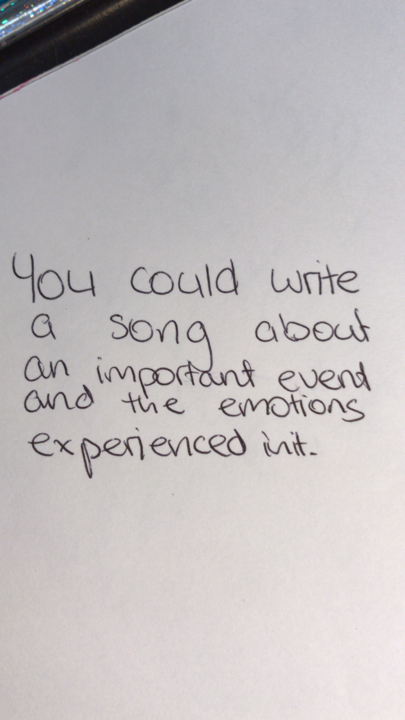 You could write
a song about
an important event
and the emotions
experienced init.